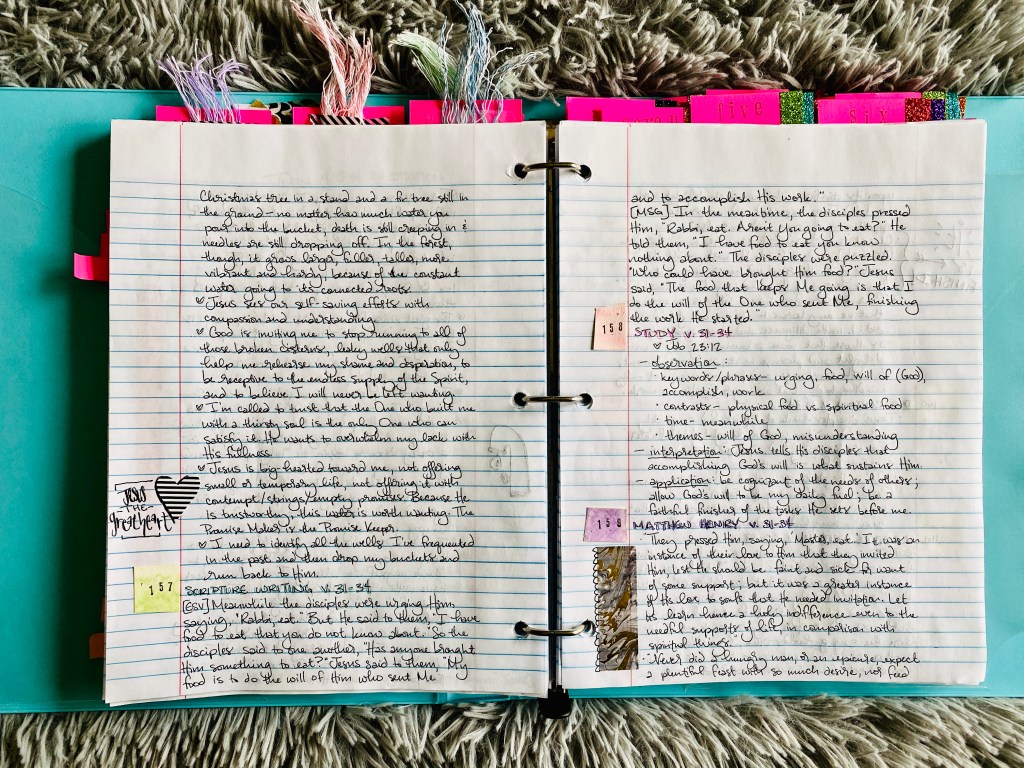 five
six
Christmas tree in a stand and a fir tree still in
the ground - no matter how much water you
pour into the bucket, death is still creeping in &
needles are still dropping off. In the forest,
though, it grows larger, fuller, taller, more
vibrant and hardy, because of the constant
water going to its connected roots.
♡ Jesus sees our self-saving efforts with
compassion and understanding.
♡ God is inviting me to stop running to all of
those broken cisterns, leaky wells that only
help me rehearse my shame and desperation, to
be receptive to the endless supply of the Spirit,
and to believe I will never be left wanting.
♡ I'm called to trust that the One who built me
with a thirsty soul is the only One who can
satisfy it. He wants to overwhelm my lack with
His fullness.
♡ Jesus is big-hearted toward me, not offering
small or temporary life, not offering it with
contempt/strings/empty promises. Because He
is trustworthy, this water is worth wanting. The
Promise Maker is the Promise Keeper.
♡ I need to identify all the wells I've frequented
in the past and then drop my buckets and
run back to Him.
JESUS
THE
greatheart
157
SCRIPTURE WRITING v. 31-34
[ESV] Meanwhile the disciples were urging Him,
saying, "Rabbi, eat." But He said to them, "I have
food to eat that you do not know about." So the
disciples said to one another, "Has anyone brought
Him something to eat?" Jesus said to them, "My
food is to do the will of Him who sent Me
and to accomplish His work."
[MSG] In the meantime, the disciples pressed
Him, "Rabbi, eat. Aren't you going to eat?" He
told them, "I have food to eat you know
nothing about." The disciples were puzzled.
"Who could have brought Him food?" Jesus
said, "The food that keeps Me going is that I
do the will of the One who sent Me, finishing
the work He started."
158
STUDY v. 31-34
♡ Job 23:12
- observation:
· keywords/phrases - urging, food, will of (God),
accomplish, work
· contrasts - physical food vs. spiritual food
· time - meanwhile
· themes - will of God, misunderstanding
- interpretation: Jesus tells His disciples that
accomplishing God's will is what sustains Him.
- application: be cognizant of the needs of others;
allow God's will to be my daily fuel; be a
faithful finisher of the tasks He sets before me.
159
MATTHEW HENRY v. 31-34
· They pressed Him, saying, "Master, eat." It was an
instance of their love to Him that they invited
Him, lest He should be faint and sick for want
of some support; but it was a greater instance
of His love to souls that He needed invitation. Let
us learn hence a holy indifference even to the
needful supports of life, in comparison with
spiritual things.
· Never did a hungry man, or an epicure, expect
a plentiful feast with so much desire, nor feed